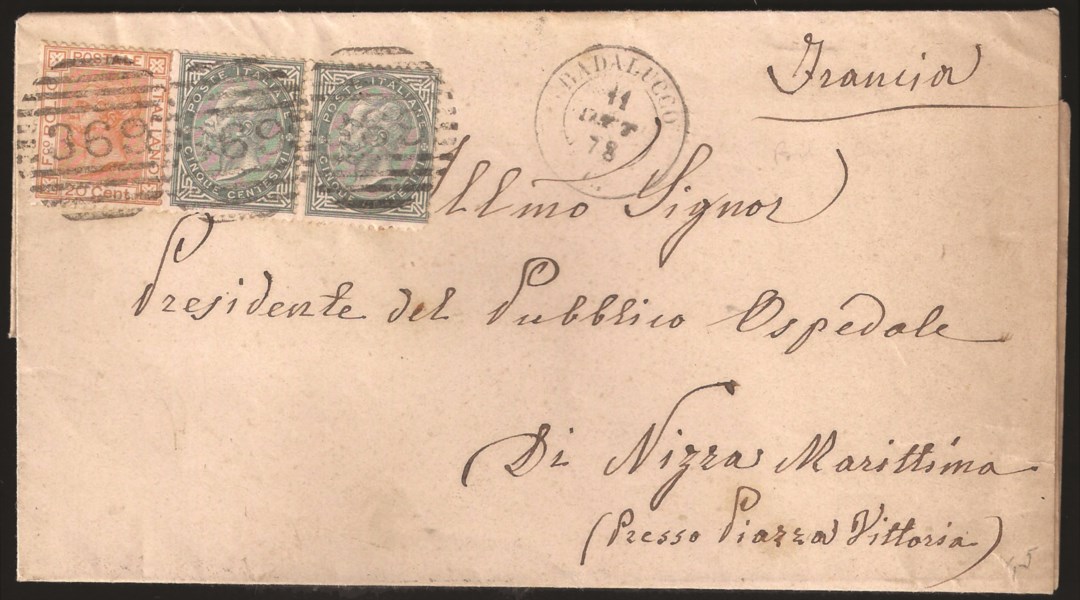 POSTALE
ITALIANO
FCO BOLLO
20 Cent.
POSTE ITALIANE
CINQUE CENTESIMI
POSTE ITALIANE
CINQUE CENTESIMI
69
BADALUCCO
11
78
Francia
Illmo Signor
Presidente del Pubblico Ospedale
Di Nizza Marittima
(Presso Piazza Vittoria)